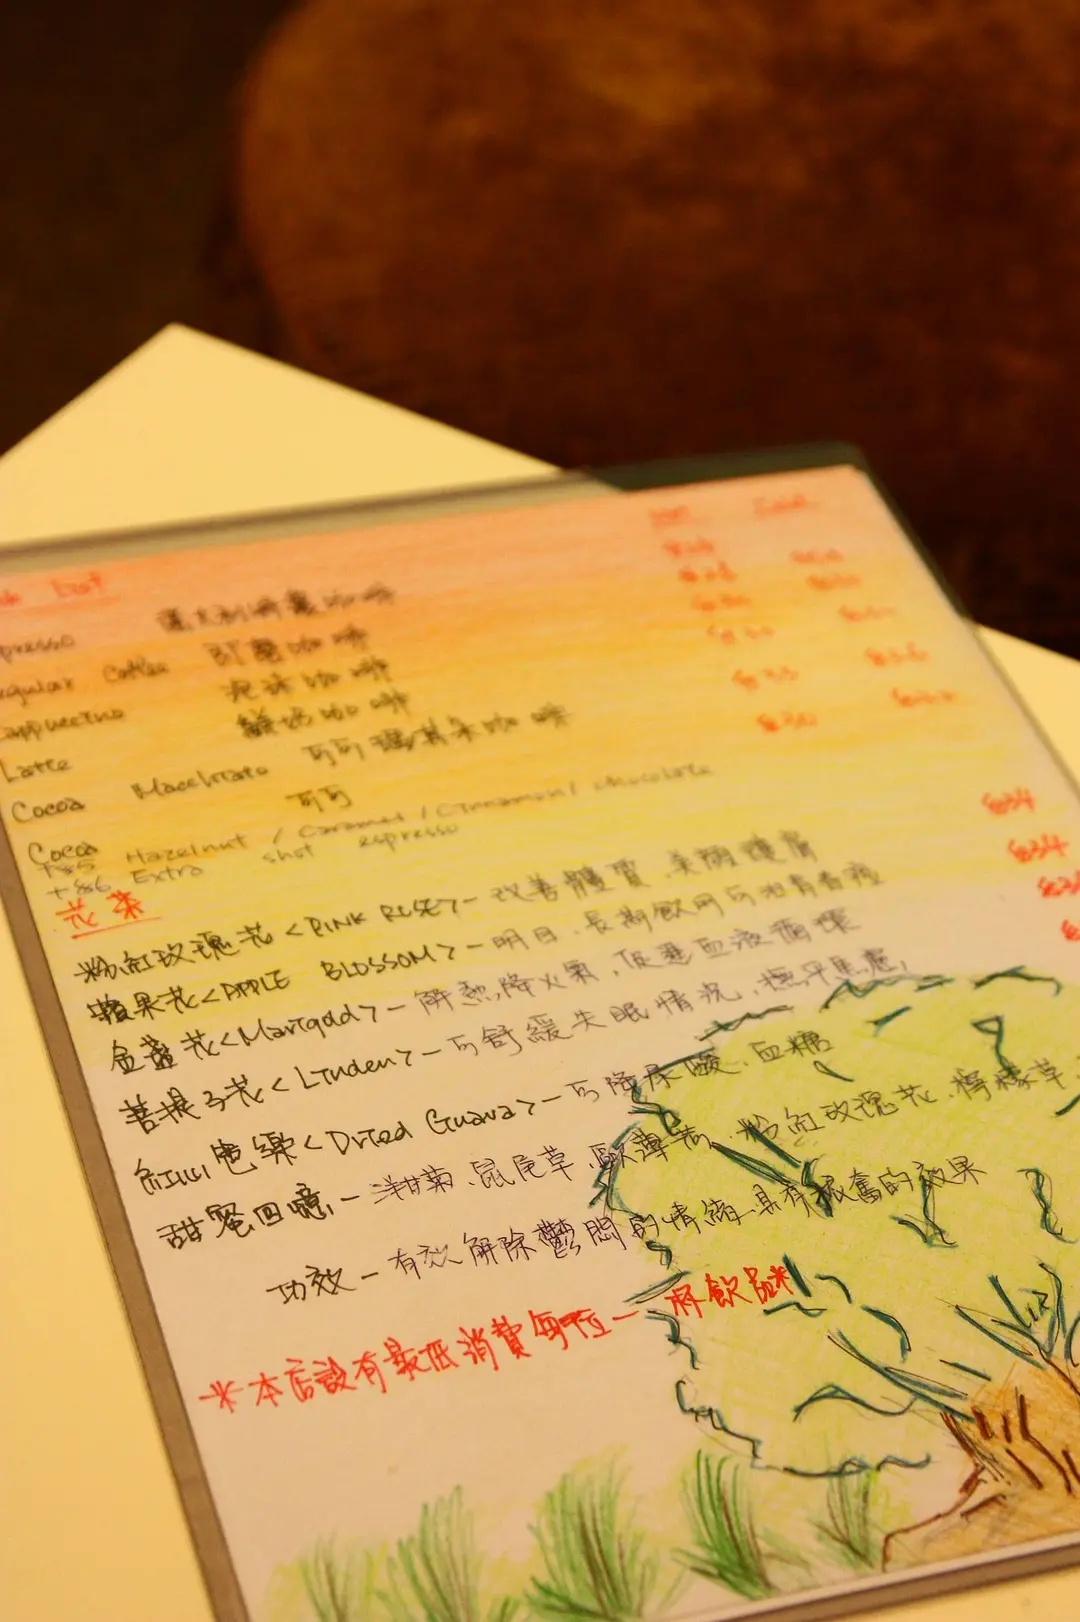 Hot Cold
List
presso 意大利濃縮咖啡
egular Coffee 即磨咖啡
appuccino 泡沫咖啡
Latte 鮮奶咖啡
Cocoa Macchiato 可可瑪其朵咖啡
Cocoa 可可
+$5 Hazelnut / Caramel / Cinnamon / chocolate
+$6 Extra shot espresso
花茶
粉紅玫瑰花<PINK ROSE>-改善體質、美顏護膚 $34
蘋果花<APPLE BLOSSOM>-明目、長期飲用可治青春痘 $34
金盞花<Marigold>-解熱降火氣、促進血液循環
菩提子花<Linden>-可舒緩失眠情況、撫平焦慮
紅心芭樂<Dried Guava>-可降尿酸、血糖
甜蜜回憶-洋甘菊、鼠尾草、歐薄荷、粉紅玫瑰花、檸檬草
功效-有效解除鬱悶的情緒、具有振奮的效果
*本店設有最低消費每位一杯飲品*